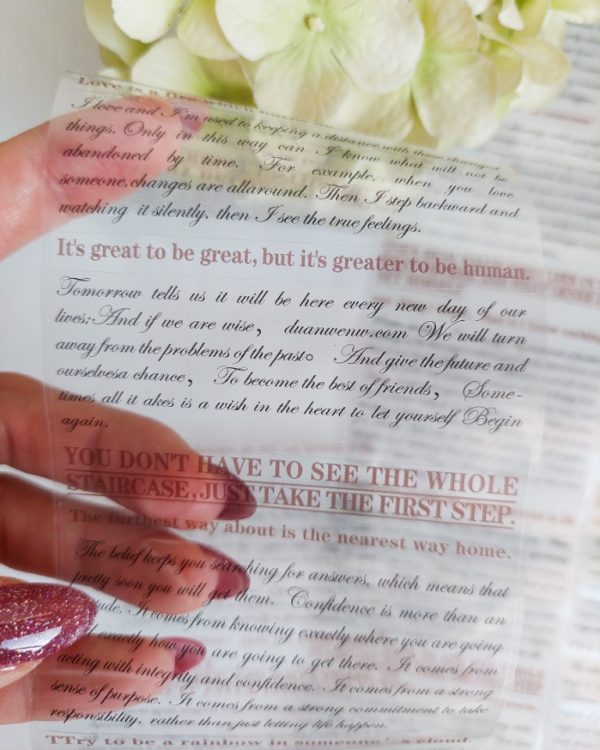 Love is a
I love and I'm used to keeping a distance with those changed
things. Only in this way can I know what will not be
abandoned by time. For example, when you love
someone,changes are allaround. Then I step backward and
watching it silently, then I see the true feelings.
It's great to be great, but it's greater to be human.
Tomorrow tells us it will be here every new day of our
lives;And if we are wise， duanwenw.com We will turn
away from the problems of the past。 And give the future and
ourselvesa chance， To become the best of friends， Some-
times all it akes is a wish in the heart to let yourself Begin
again.
YOU DON'T HAVE TO SEE THE WHOLE
STAIRCASE, JUST TAKE THE FIRST STEP.
The furthest way about is the nearest way home.
The belief keeps you searching for answers, which means that
pretty soon you will get them. Confidence is more than an
ude. It comes from knowing exactly where you are going
exactly how you are going to get there. It comes from
acting with integrity and confidence. It comes from a strong
sense of purpose. It comes from a strong commitment to take
responsibility, rather than just letting life happen.
TTry to be a rainbow in someone' s cloud.